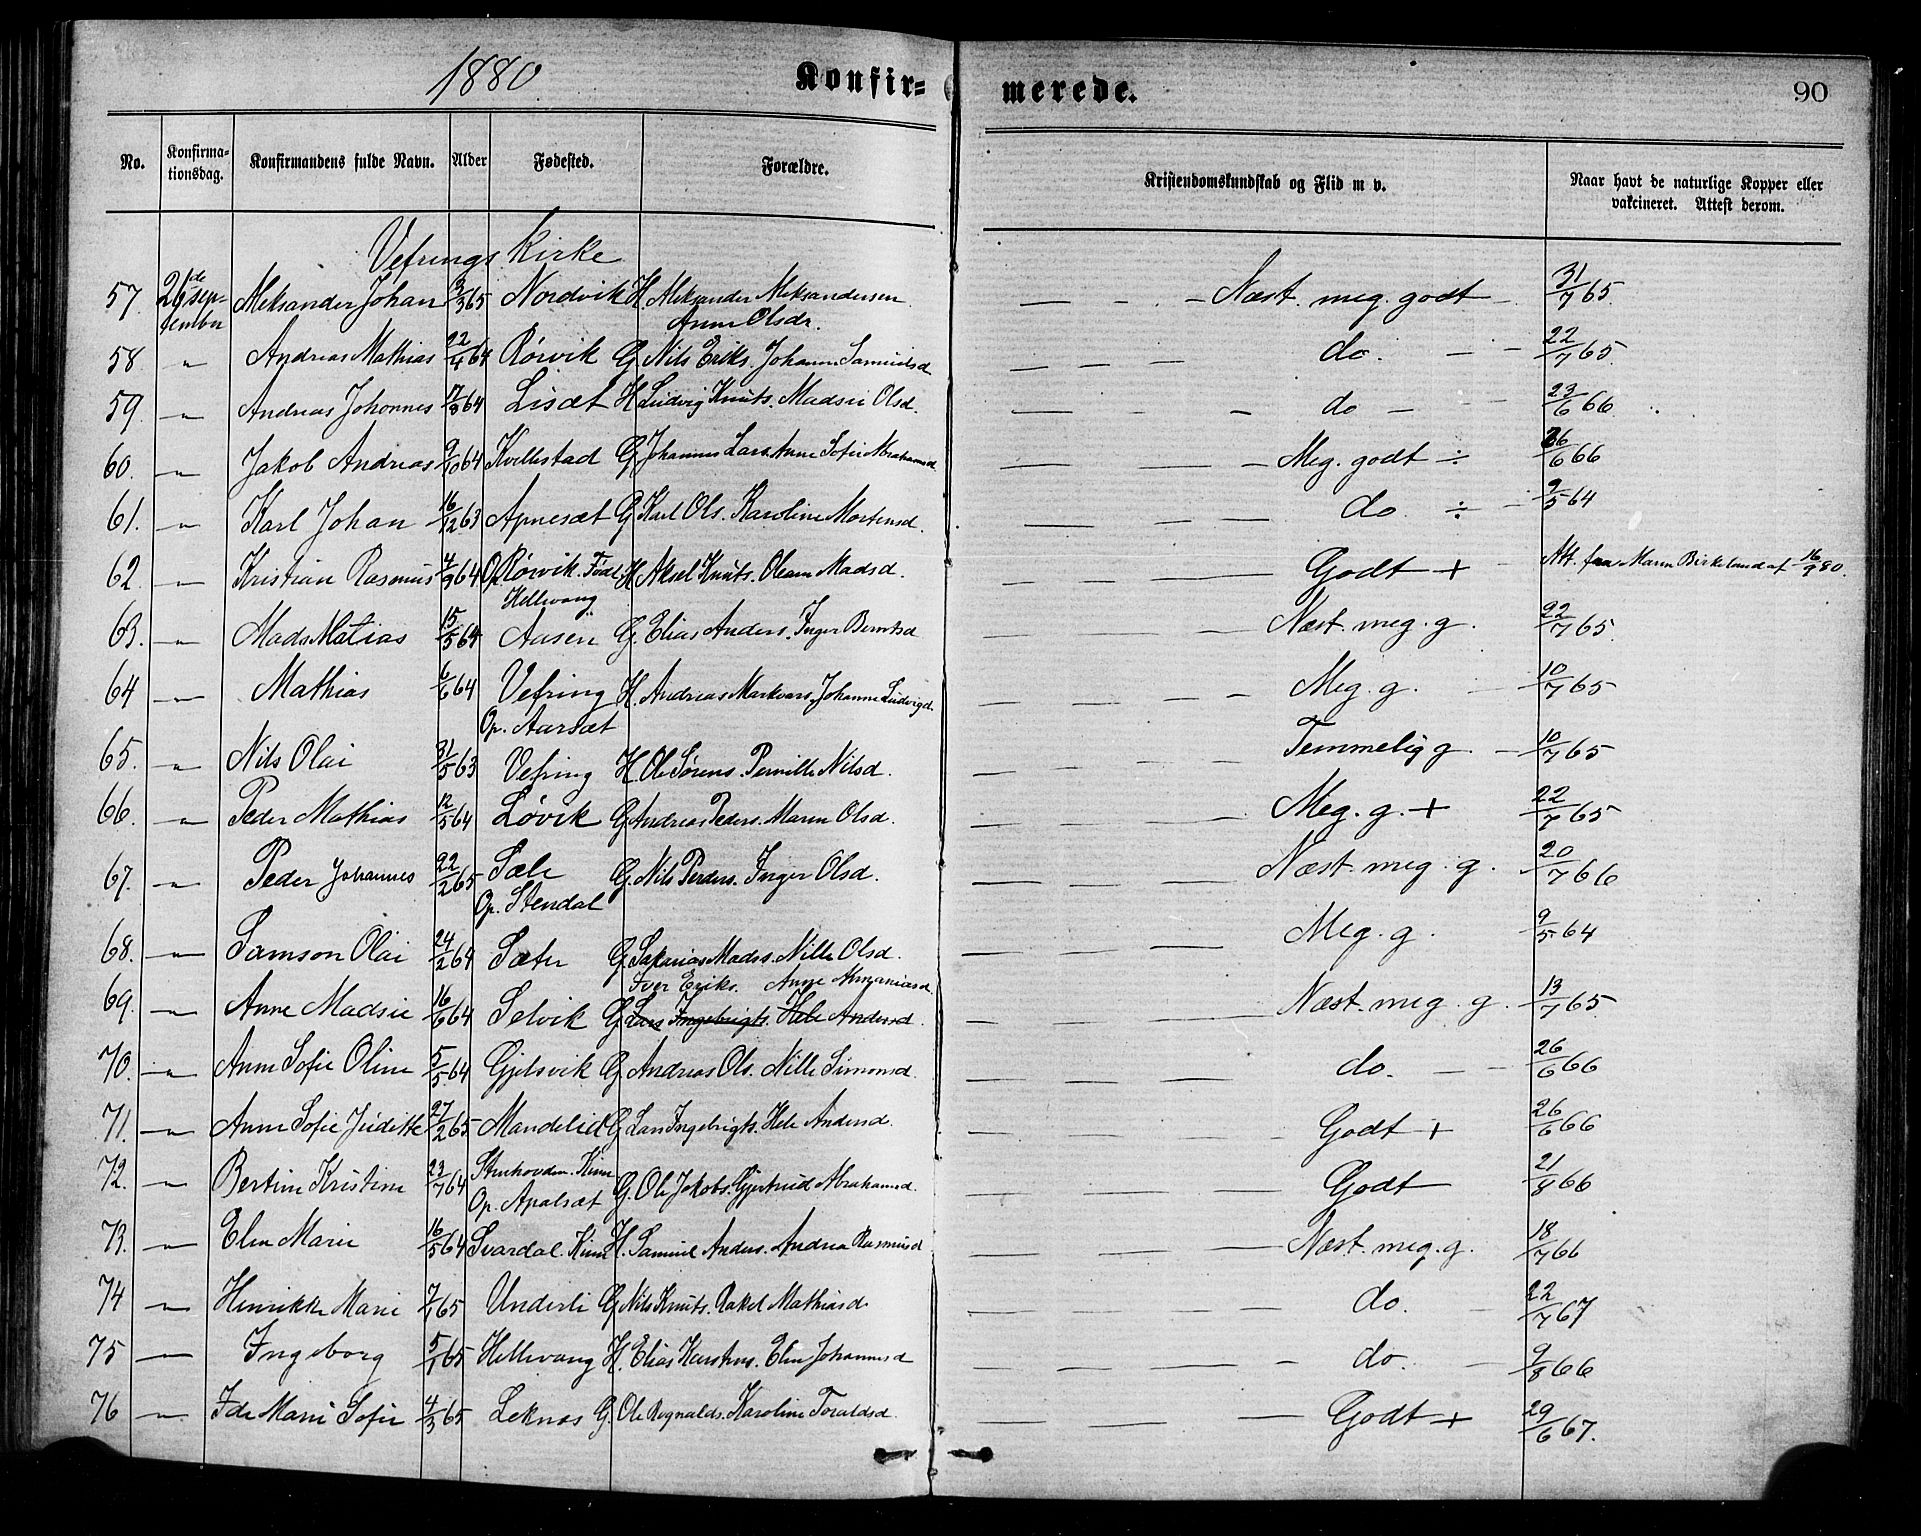 1880. Konfir= merede. 90
No. Konfirma-tionsdag. Konfirmandens fulde Navn. Alder Fødested. Forældre. Kristendomskundskab og Flid m v. Naar havt de naturlige Kopper eller vakcineret. Attest derom.
Vefrings Kirke
57. 26de September Aleksander Johan 3/3 65 Nordvik H. Aleksander Aleksandersen Anne Olsdr. — — - - Næst. meg. godt - 31/7 65.
58. " Andreas Mathias 22/4 64 Rørvik G Nils Eriks. Johanne Samuelsd — — — do. — - 22/7 65.
59. " Andreas Johannes 17/8 64 Lisæt H Ludvig Knuts. Madsie Olsd. — — - - do — - - 23/6 66.
60. " Jakob Andreas 9/10 64 Kvellestad G Johannes Lars. Anne Sofie Abrahamsd — — — - Meg. godt ÷ 26/6 66
61. " Karl Johan 16/12 63 Apnesæt G Karl Ols. Karoline Mortensd. — — — — do. ÷ - 9/5 64
62. " Kristian Rasmus 4/9 64 Op. Rørvik. Født Hellevang H Aksel Knuts. Oleane Madsd. — — — — Godt + Att. fra Maren Birkeland af 16/9 80.
63. " Mads Matias 15/5 64 Aasen G Elias Anders. Inger Berntsd — — — Næst. meg. g. 22/7 65.
64 " Mathias 6/6 64 Vefring Op. Aarsæt H. Andreas Markvars. Johanne Ludvigd. — — — - Meg. g. — 10/7 65
65. " Nils Olai 31/5 63 Vefring H Ole Sørens. Pernille Nilsd. — — — — Temmelig g. - 10/7 65
66. " Peder Mathias 12/5 64 Løvik G Andreas Peders. Maren Olsd. — — — — Meg. g. + 22/7 65
67. " Peder Johannes 22/2 65 Sæle Op. Stendal G. Nils Peders. Inger Olsd. — — — — Næst. meg. g. 20/7 66
68. " Samson Olai 24/2 64 Sæter G. Sakarias Mads. Nille Olsd. — — — — Meg. g. 9/5 64
Iver Eriks. Anne Ananiasd.
69. " Anne Madsie 16/6 64 Selvik G Lars Ingebrigts. Hele Andersd. — — — — Næst. meg. g. 13/7 65
70. " Anne Sofie Oline 5/5 64 Gjelsvik G Andreas Ols. Nille Simonsd. — — — — do. — - 26/6 66
71. " Anne Sofie Juditte 27/2 65 Mandelid G Lars Ingebrigts. Hele Andersd. — — — - Godt + 26/6 66
72. " Bertine Kristine 23/7 64 Stenhovden. Kinn Op. Apalsæt G. Ole Jakobs. Gjertrud Abrahamsd. — — — — Godt 21/8 66
73. " Elen Marie 16/5 64 Svardal. Kinn H. Samuel Anders. Andrea Rasmusd — — — — Næst. meg. g. 18/7 66
74 " Henrikke Marie 7/1 65 Underli G Nils Knuts. Rakel Mathiasd. — — — — do. — 22/7 67
75 — Ingeborg 5/1 65 Hellevang H. Elias Karstens. Elen Johannesd — — — - do. — 9/8 66
76 " Ide Marie Sofie 4/3 65 Leknes G Ole Regnalds. Karoline Toraldsd. — — — — Godt + 29/6 67.